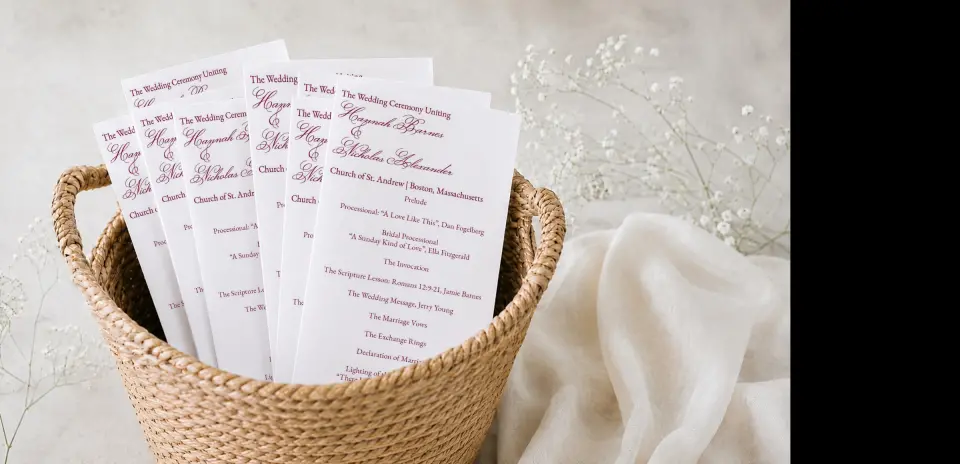 The Wedding Ceremony Uniting
The Wedding Ceremony Uniting
Hannah Barnes
&
Nicholas Alexander
Church of St. Andrew | Boston, Massachusetts
Prelude
Processional: "A Love Like This", Dan Fogelburg
Bridal Processional
"A Sunday Kind of Love", Ella Fitzgerald
The Invocation
The Scripture Lesson: Romans 12:9-21, Jamie Barnes
The Wedding Message, Jerry Young
The Marriage Vows
The Exchange Rings
Declaration of
Lighting of
"There